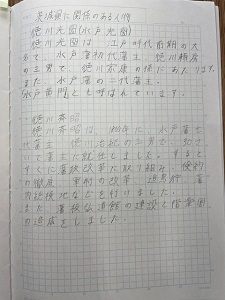 茨城県に関係のある人物
徳川光圀(水戸光圀)
徳川光圀は、江戸時代前期の大
名で、水戸藩初代藩主 徳川頼房
の三男で、徳川家康の孫にあたります。
また、水戸藩の二代藩主。
「水戸黄門」とも呼ばれています。
・徳川斉昭
徳川斉昭は、水戸藩主
七代藩主 徳川治紀の三男で、
藩主に就任しました。すると
すぐに藩政改革に取り組み、倹約
の徹底、軍制の改革、追鳥狩、
検地などを行いました。
また、藩校弘道館の建設と偕楽園
の造成をしました。